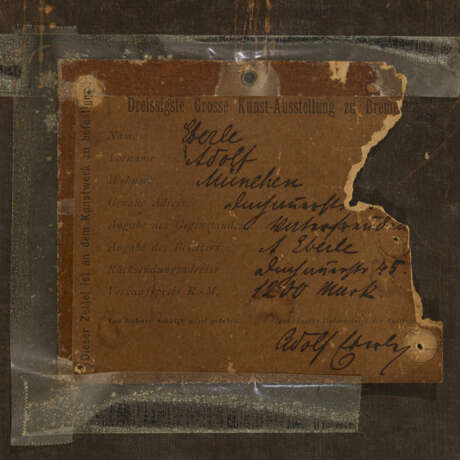 Dreissigste Grosse Kunst-Ausstellung zu Breme
Name: Eberle
Vorname Adolf
Wohnort München
Genaue Adresse Dachauerstr
Angabe des Gegenstand. Vaterfreuden
Angabe des Besitzers A. Eberle
Rücksendungsadresse Dachauerstr 45.
Verkaufspreis R.-M. 1200 Mark.
Adolf Eberle
Dieser Zettel ist an dem Kunstwerk zu befestigen